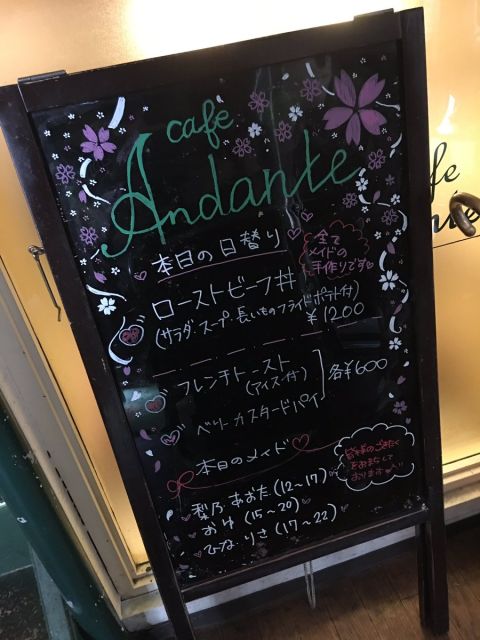 cafe
Andante
本日の日替り
全て
メイドの
手作りです
ローストビーフ丼
(サラダ・スープ・長いものフライドポテト付)
¥1200
フレンチトースト
(アイス付)
各¥600
ベリーカスタードパイ
本日のメイド
皆様のごきたく
をおまちして
おります
梨乃 あおた (12~17)
おゆ (15~20)
ひな りさ (17~22)